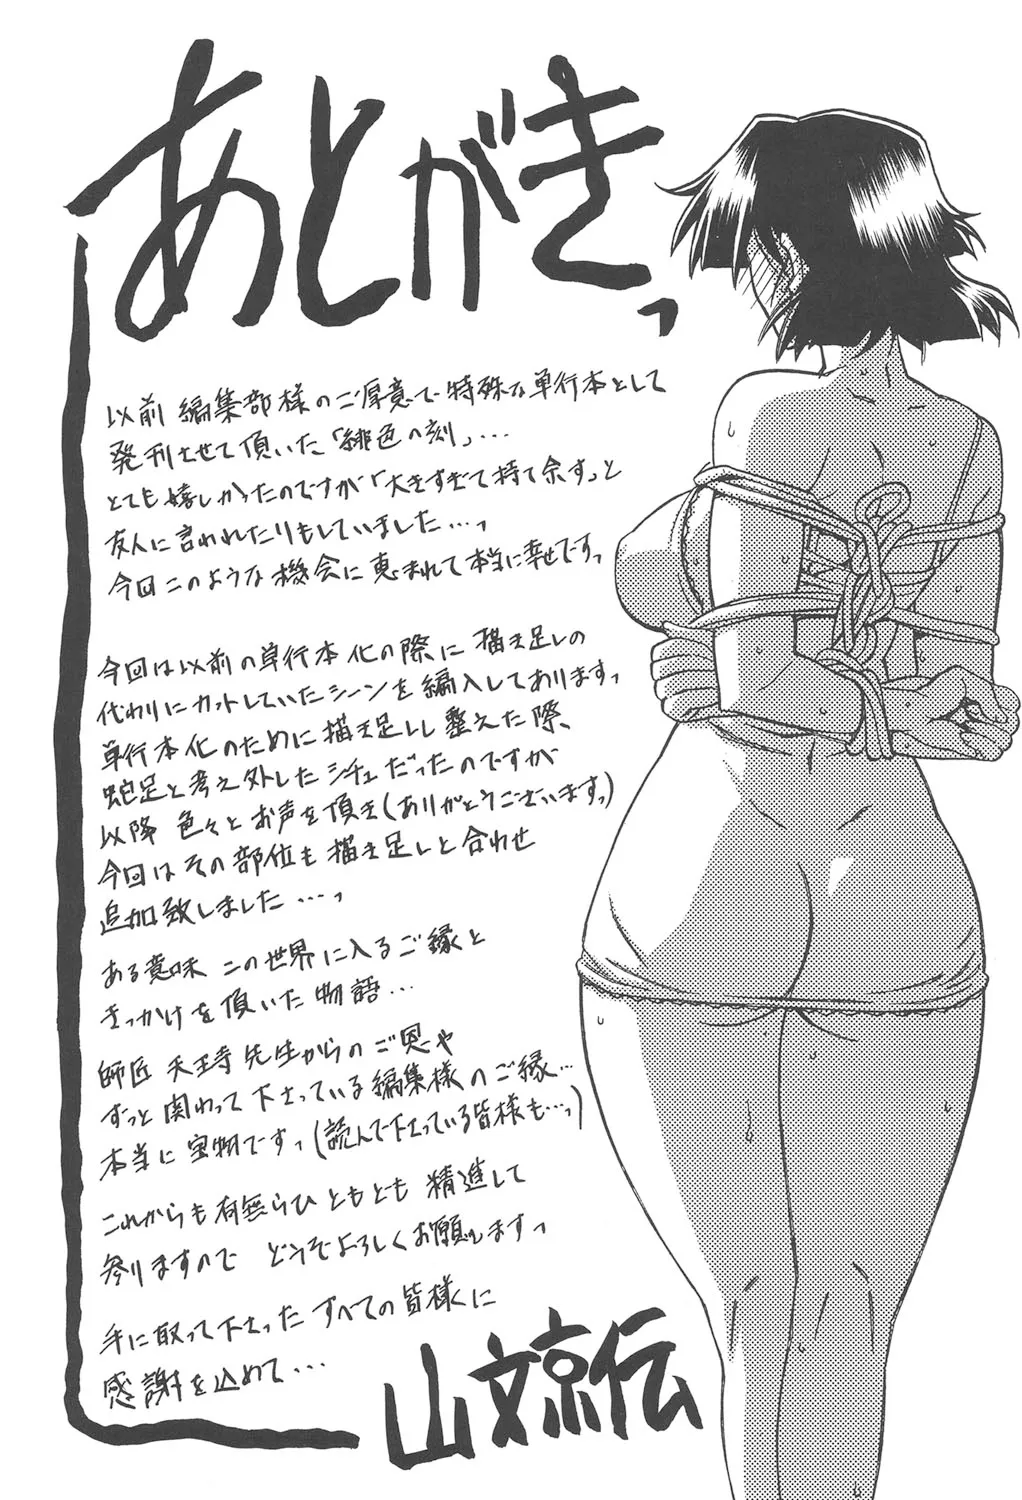 あとがきっ
以前 編集部様のご厚意で 特殊な単行本として
発刊させて頂いた「緋色の刻」…
とても嬉しかったのですが「大きすぎて持て余すっと
友人に言われたりもしていました…っ
今回このような機会に恵まれて本当に幸せですっ
今回は以前の単行本化の際に描き足しの
代わりにカットしていたシーンを編入してありますっ
単行本化のために描き足しし整えた際、
蛇足と考え外したシチュだったのですが
以降 色々とお声を頂き(ありがとうございますっ)
今回はその部位も描き足しと合わせ
追加致しました…っ
ある意味 この世界に入るご縁と
きっかけを頂いた物語…
師匠 天王寺先生からのご恩や
ずっと関わって下さっている編集様のご縁…
本当に宝物ですっ(読んで下さっている皆様も…っ)
これからも有無らひともとも 精進して
参りますので どうぞよろしくお願いしますっ
手に取って下さった すべての皆様に
感謝を込めて…
山文京伝